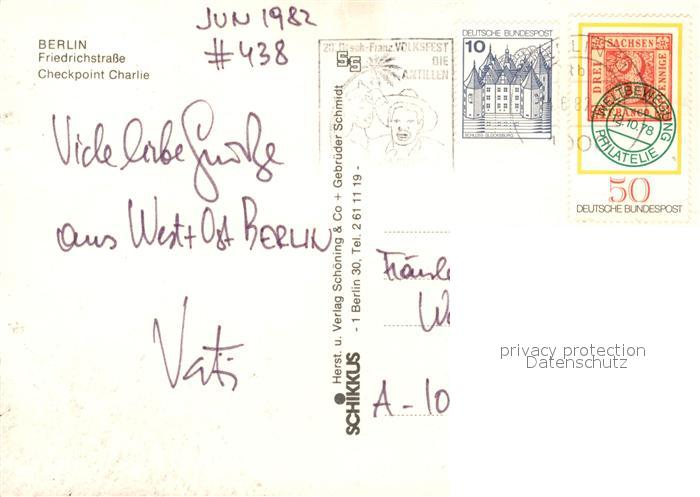 JUN 1982
#438
BERLIN
Friedrichstraße
Checkpoint Charlie
Viele liebe Grüße
aus West + Ost BERLIN
Vati
SCHIKKUS
Herst. u. Verlag Schöning & Co + Gebrüder Schmidt
- 1 Berlin 30, Tel. 2 61 11 19 -
VOLKSFEST
DIE
ANTILLEN
DEUTSCHE BUNDESPOST
10
SCHLOSS GLÜCKSBURG
SACHSEN
DREI PFENNIGE
FRANCO
WELTBEWEGUNG
PHILATELIE
50
DEUTSCHE BUNDESPOST
A - 10
privacy protection
Datenschutz